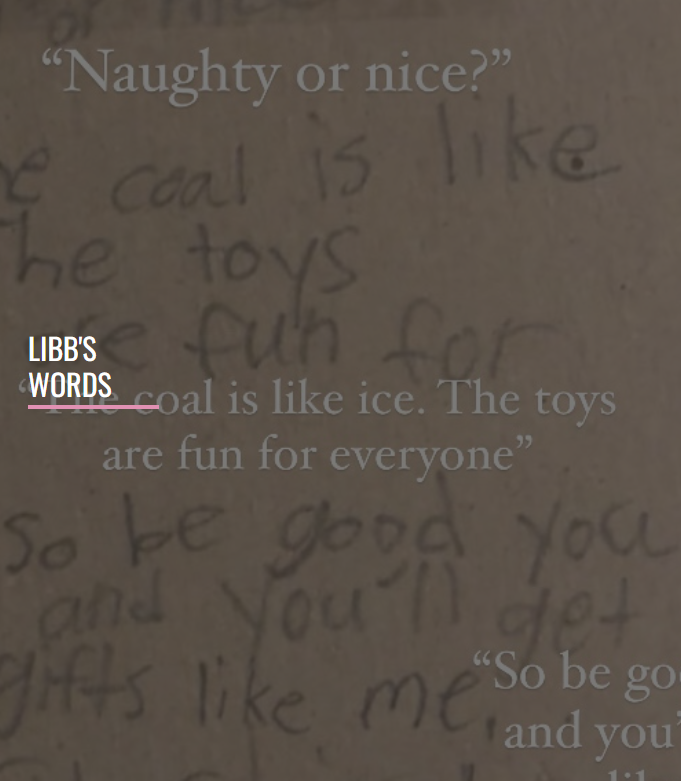 or nice
“Naughty or nice?”
coal is like
he toys
fun for
LIBB'S
WORDS
“The coal is like ice. The toys
are fun for everyone”
so be good you
and you'll get
gifts like me,
“So be go
and you'